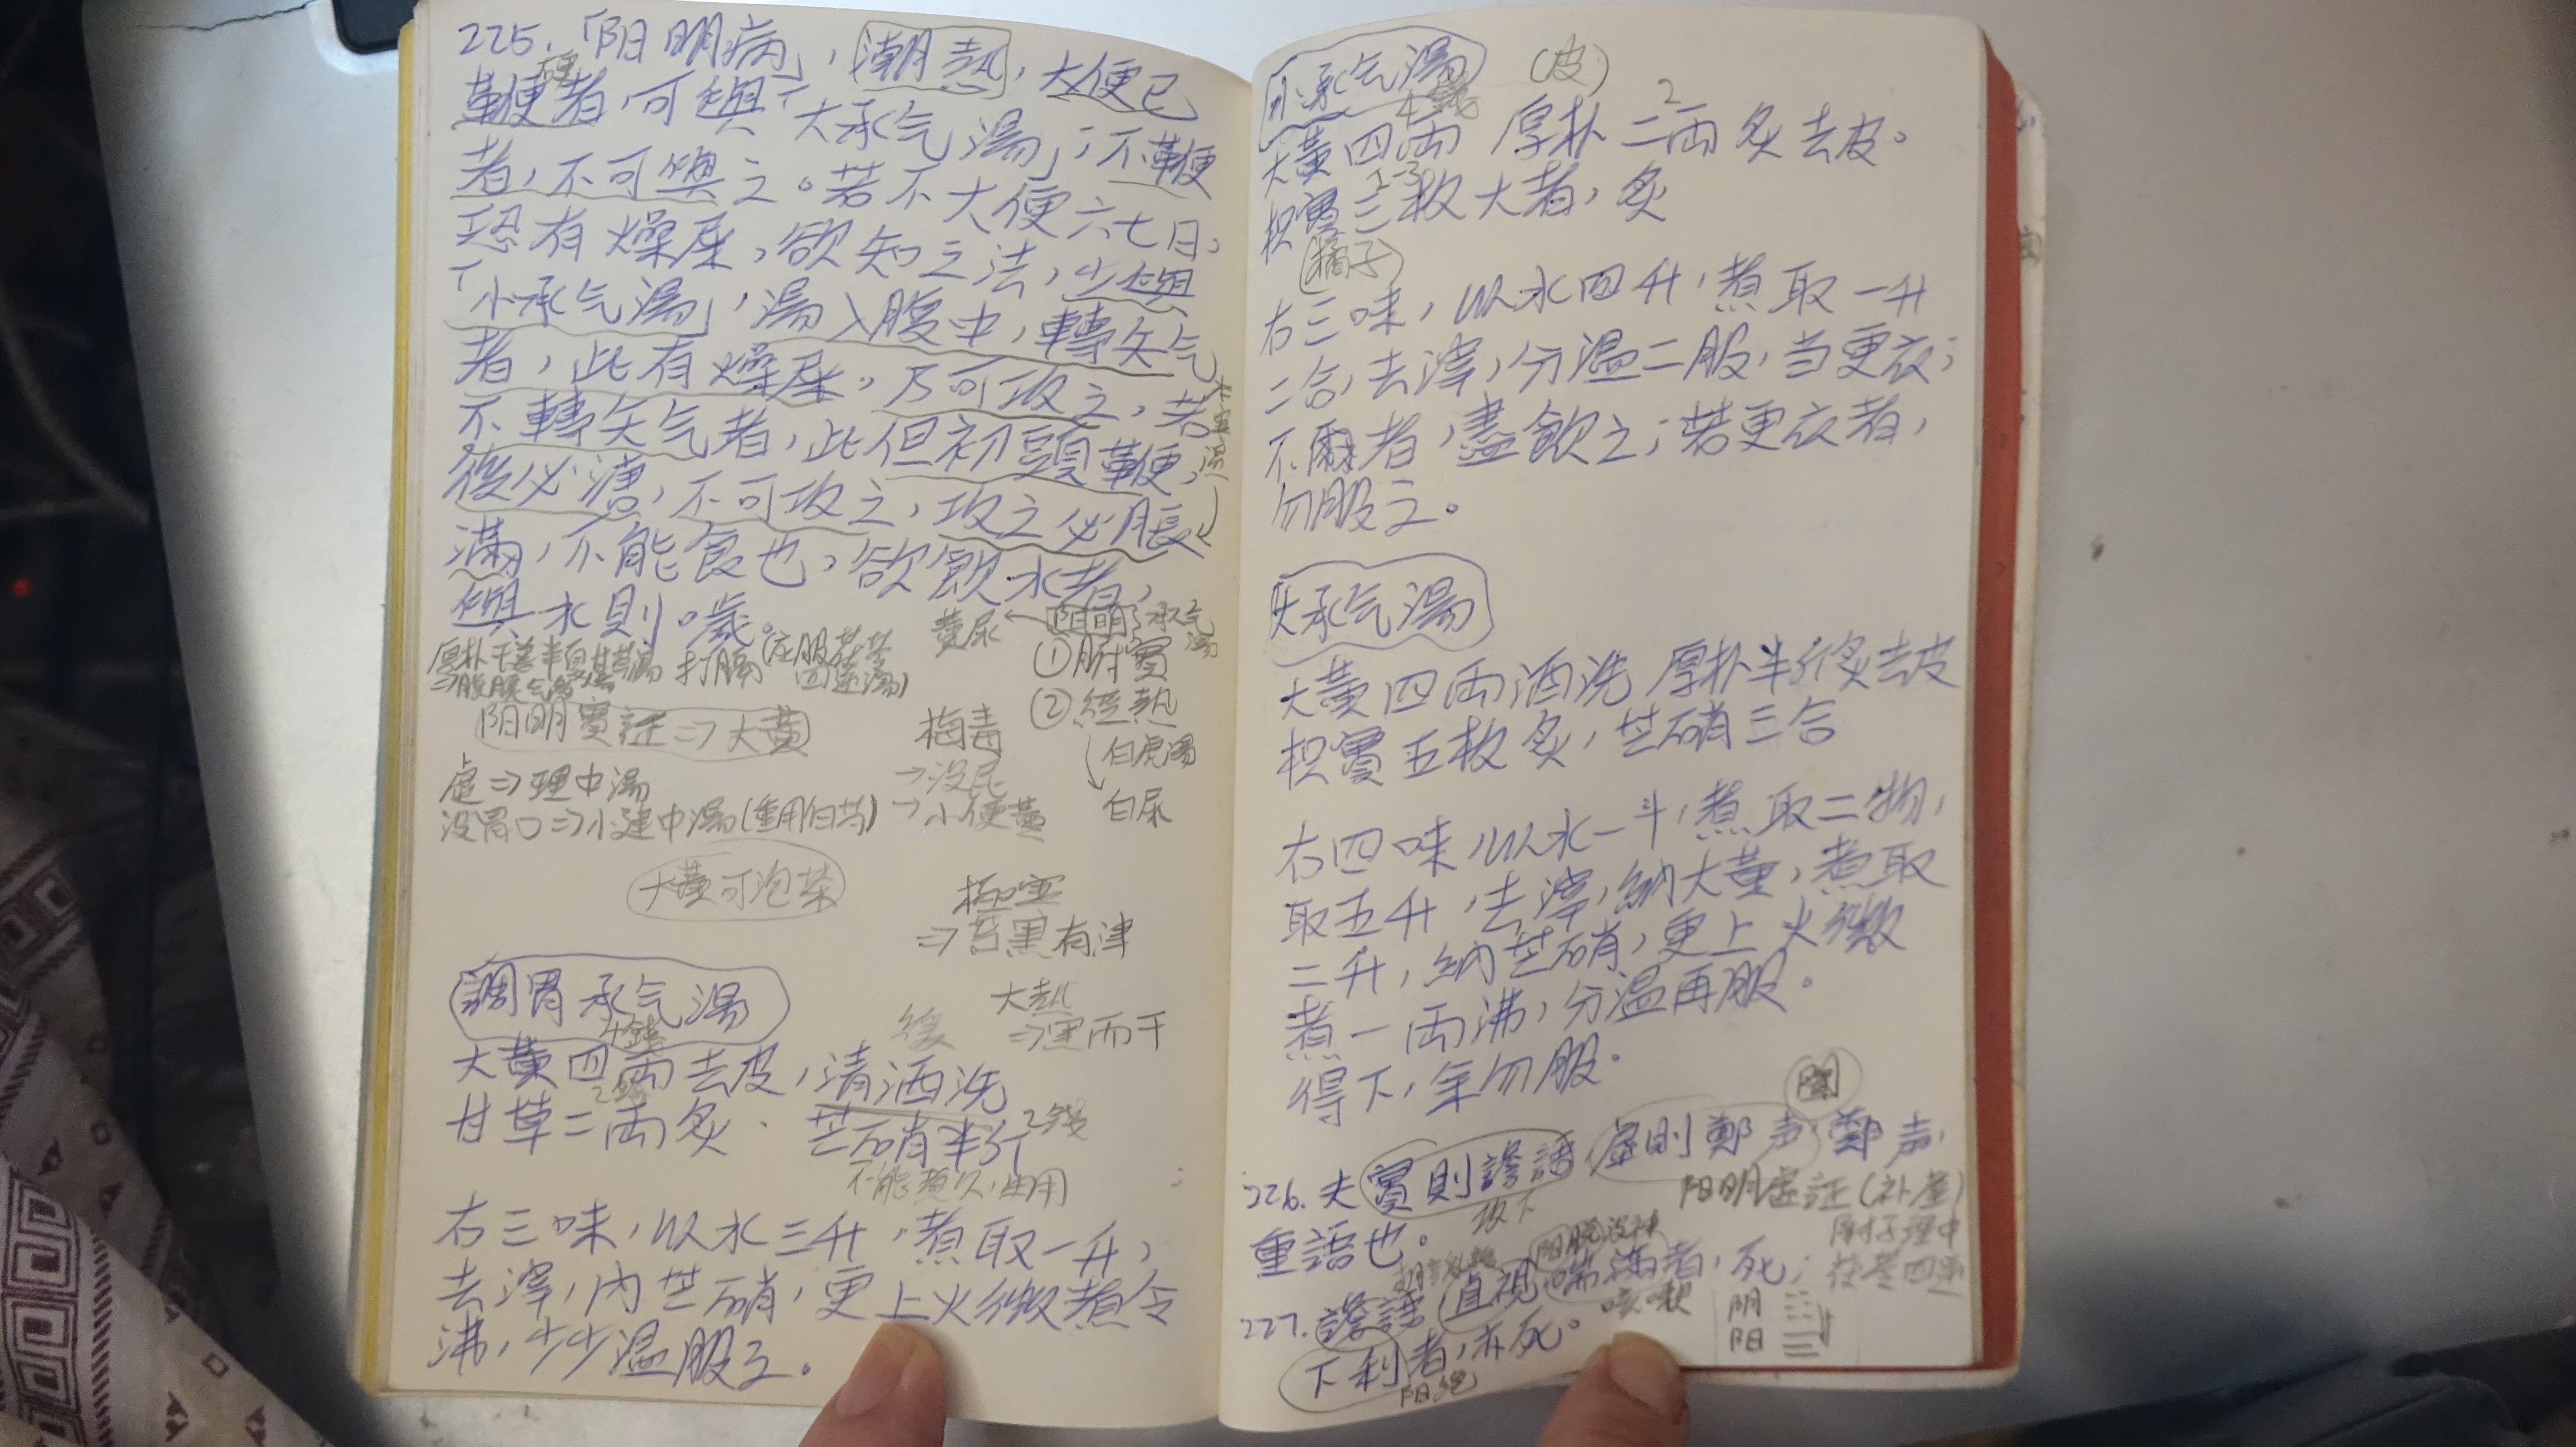 225.「阳明病」,潮熱,大便已
硬
鞕者,可與「大承气湯」;不鞕
者,不可與之。若不大便六七日,
恐有燥屎,欲知之法,少與
「小承气湯」,湯入腹中,轉矢气
者,此有燥屎,乃可攻之,若
不轉矢气者,此但初頭鞕,
後必溏,不可攻之,攻之必脹
滿,不能食也,欲飲水者,
與水則噦。
厚朴干姜半夏甘草湯
⇒腹脹气
打膈
黄尿 ← 阳明 承气湯
①腑實
②經熱
↓白虎湯
白尿
阳明實証⇒大黄
虛⇒理中湯
没胃口⇒小建中湯(重用白芍)
梅毒
→没尿
→小便黄
大黄可泡茶
極寒
⇒苔黑有津
大熱
⇒黑而干
調胃承气湯
4錢
大黄四兩去皮,清酒洗
2錢
甘草二兩炙. 芒硝半斤
2錢
不能煮久,
右三味,以水三升,煮取一升,
去滓,内芒硝,更上火微煮令
沸,少少溫服之。
小承气湯
(皮)
4錢 2
大黄四兩 厚朴二兩炙去皮。
1-3
枳實三枚大者,炙
(橘子)
右三味,以水四升,煮取一升
二合,去滓,分溫二服,当更衣;
不爾者,盡飲之;若更衣者,
勿服之。
大承气湯
大黄四兩酒洗 厚朴半斤炙去皮
枳實五枚炙,芒硝三合
右四味,以水一斗,煮取二物,
取五升,去滓,納大黄,煮取
二升,納芒硝,更上火微
煮一兩沸,分溫再服.
得下,余勿服.
226.夫實則譫語,虛則鄭声,鄭声,
攻下
阳明虛証(补虛)
重語也。
附子理中
茯苓四逆
阳脱没神
227.譫語直視喘滿者,死;
咳嗽
阴
阳
下利者,亦死。
阳絕